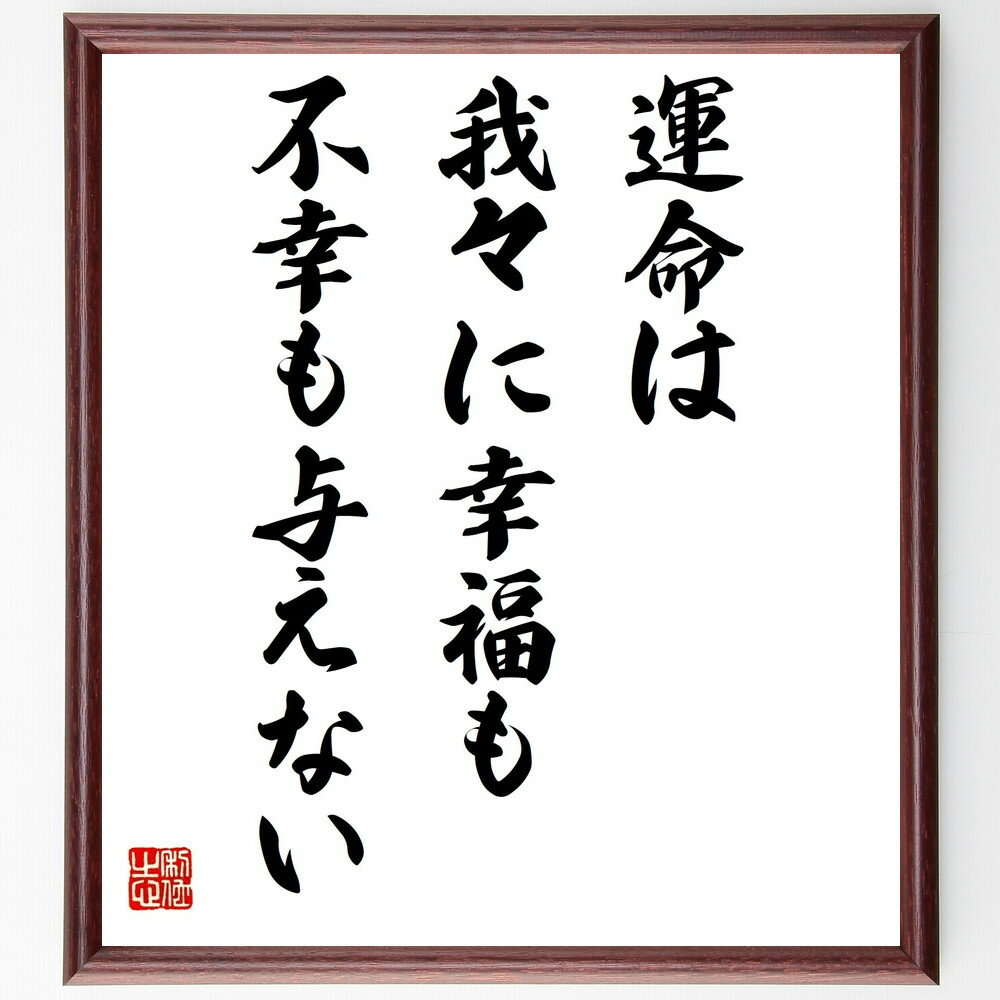 運命は
我々に幸福も
不幸も与えない